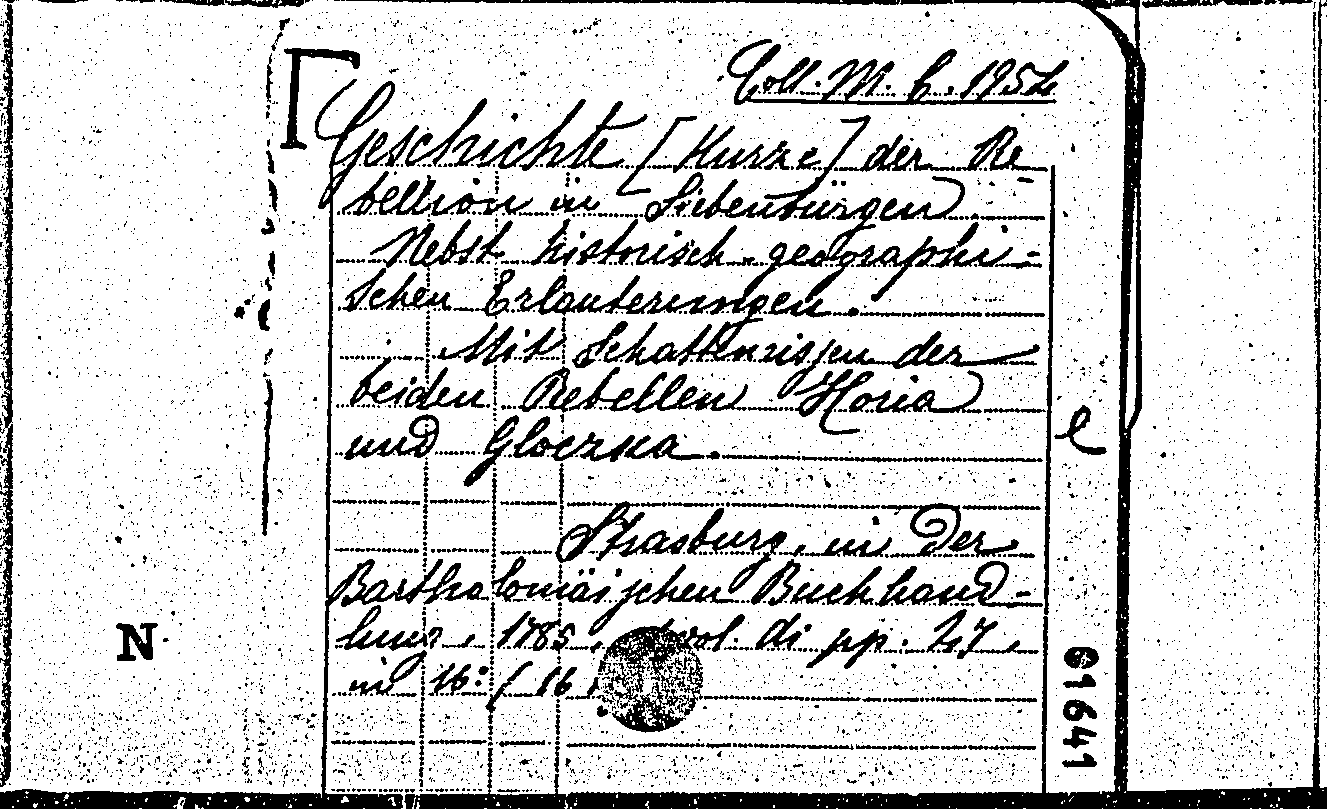 Coll. M. C. 1952
Geschichte [Kurze] der Re
bellion in Siebenbürgen.
Nebst historisch-geographi-
schen Erlauterungen.
Mit Schattenrissen der
beiden Rebellen Horia
und Gloczka.
e
Strasburg, in der
Bartholomäischen Buchhand-
lung, 1785, vol. di pp. 47,
in 16: (16
N
61641